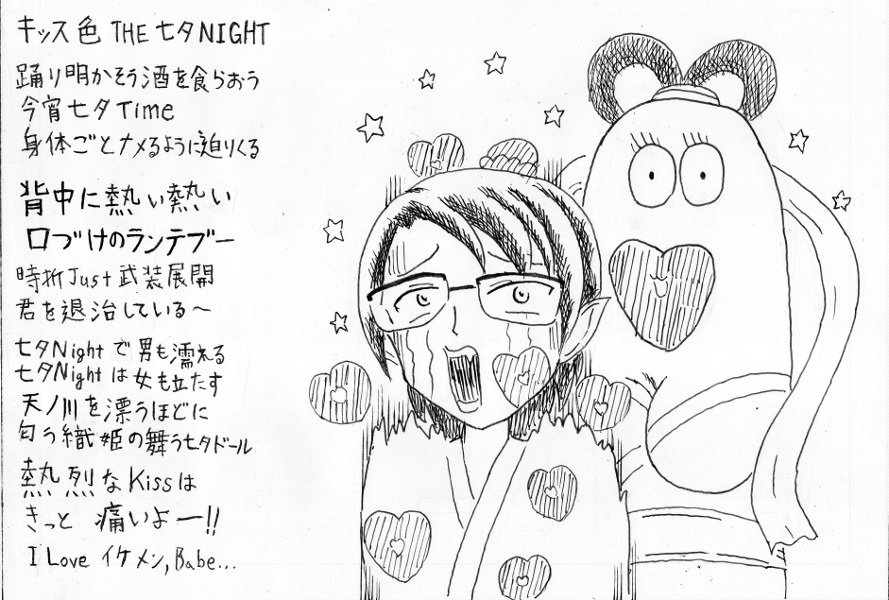 キッス色 THE 七夕 NIGHT
踊り明かそう酒を食らおう
今宵七夕Time
身体ごとナメるように迫りくる
背中に熱い熱い
口づけのランデブー
時折Just武装展開
君を退治している〜
七夕Nightで男も濡れる
七夕Nightは女も立たす
天ノ川を漂うほどに
匂う織姫の舞う七夕ドール
熱烈なKissは
きっと 痛いよー!!
I Love イケメン, Babe...